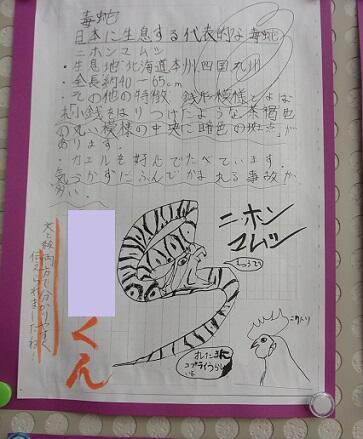 毒蛇
日本に生息する代表的な毒蛇
ニホンコムツ
・生息地 北海道本州、四国九州
・全長約40〜65cm
・その他の特徴 銭形模様とよば
れ小銭をはりつけたような茶褐色
の丸い模様の中央に暗色の斑点が
あります。
・カエルを好んでたべています。
気づかずにふんでかまれる事故が
多い。
ニホン
コムツ
ニワトリ
くん
文と絵両方で分かりやすく
伝えられましたね